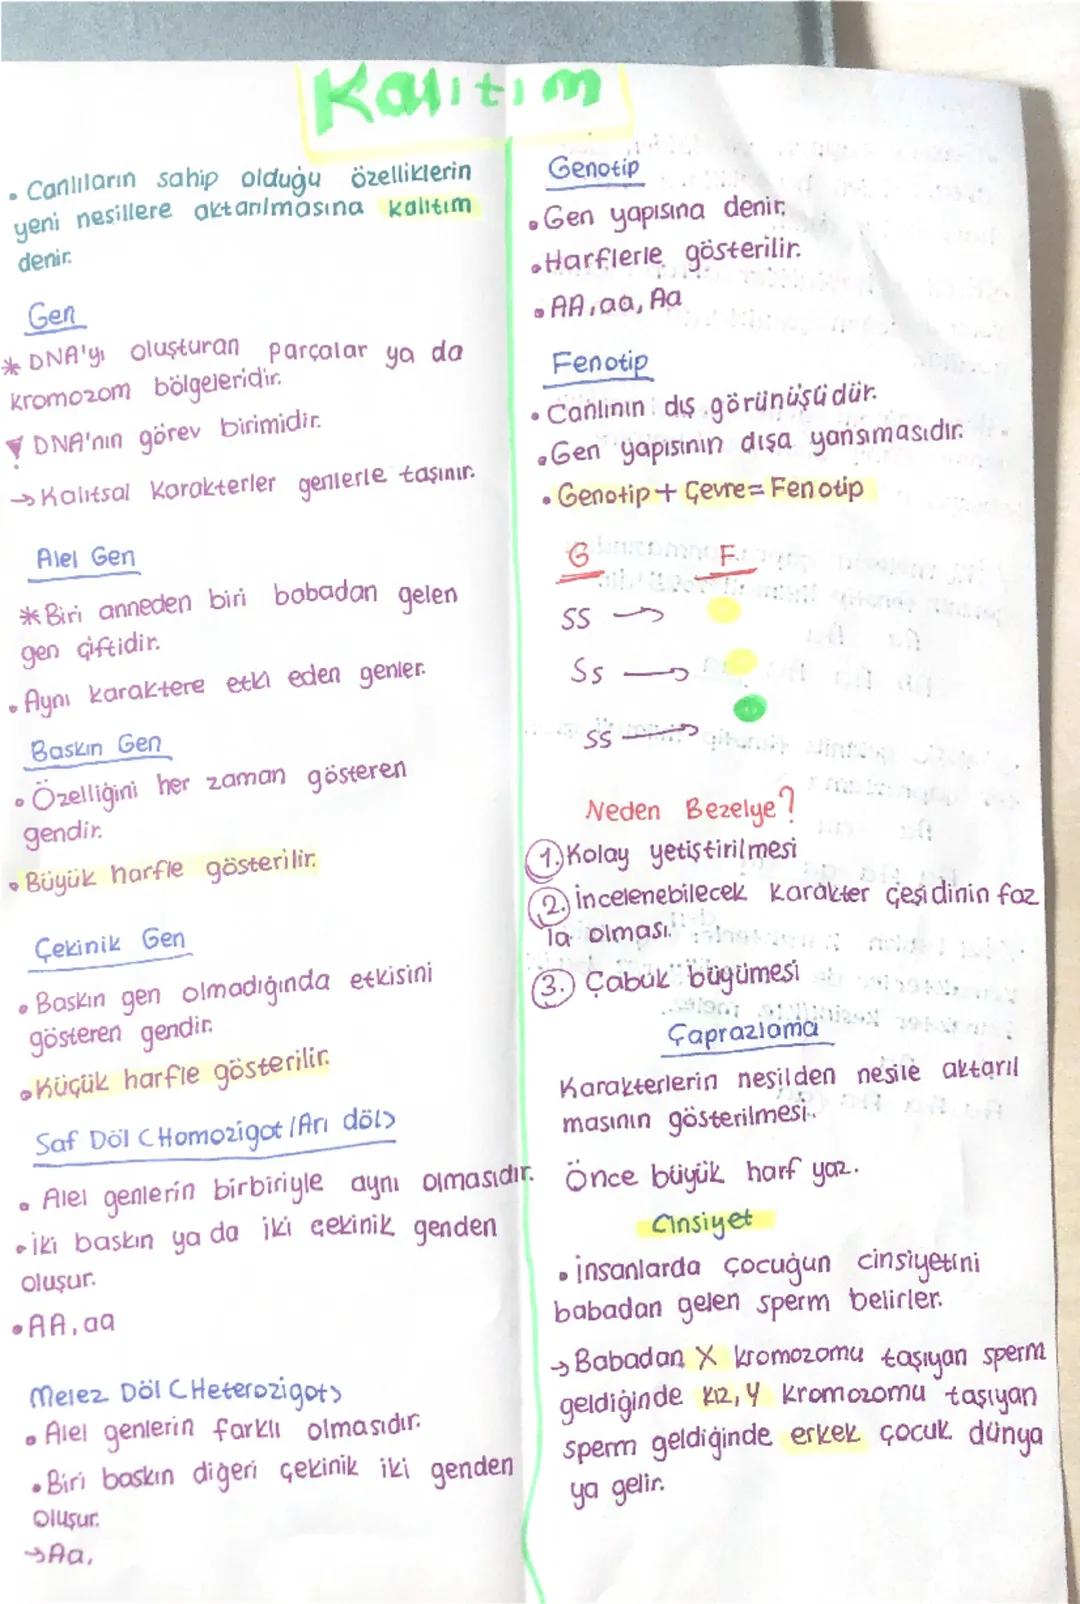 Kalıtım
• Canlıların sahip olduğu özelliklerin
yeni nesillere aktarılmasına kalıtım
denir.
Gen
* DNA'yı oluşturan parçalar ya da
kromozom bölgeleridir.
DNA'nın görev birimidir.
→ Kalıtsal Karakterler genlerle taşınır.
Alel Gen
* Biri anneden biri babadan gelen
gen çiftidir.
• Aynı karaktere etki eden genler.
Baskın Gen
• Özelliğini her zaman gösteren
gendir.
• Büyük harfle gösterilir.
Çekinik Gen
• Baskın gen olmadığında etkisini
gösteren gendir.
• Küçük harfle gösterilir.
Saf Döl (Homozigot/Arı döl)
• Alel genlerin birbiriyle aynı olmasıdır.
• iki baskın ya da iki çekinik genden
oluşur.
• AA, aa
Melez Döl (Heterozigot)
• Alel genlerin farklı olmasıdır.
• Biri baskın diğeri çekinik iki genden
oluşur.
→ Aa,
Genotip
• Gen yapısına denir.
• Harflerle gösterilir.
• AA, aa, Aa
Fenotip
• Canlının dış görünüşüdür.
• Gen yapısının dışa yansımasıdır.
• Genotip + Çevre = Fenotip
G F
SS →
Ss →
ss →
Neden Bezelye?
1.) Kolay yetiştirilmesi
2.) İncelenebilecek Karakter çeşidinin faz
la olması.
3.) Çabuk büyümesi
Çaprazlama
Karakterlerin nesilden nesile aktarıl
masının gösterilmesi..
Önce büyük harf yaz.
Cinsiyet
• İnsanlarda çocuğun cinsiyetini
babadan gelen sperm belirler.
→ Babadan X kromozomu taşıyan sperm
geldiğinde kız, Y kromozomu taşıyan
sperm geldiğinde erkek çocuk dünya
ya gelir.